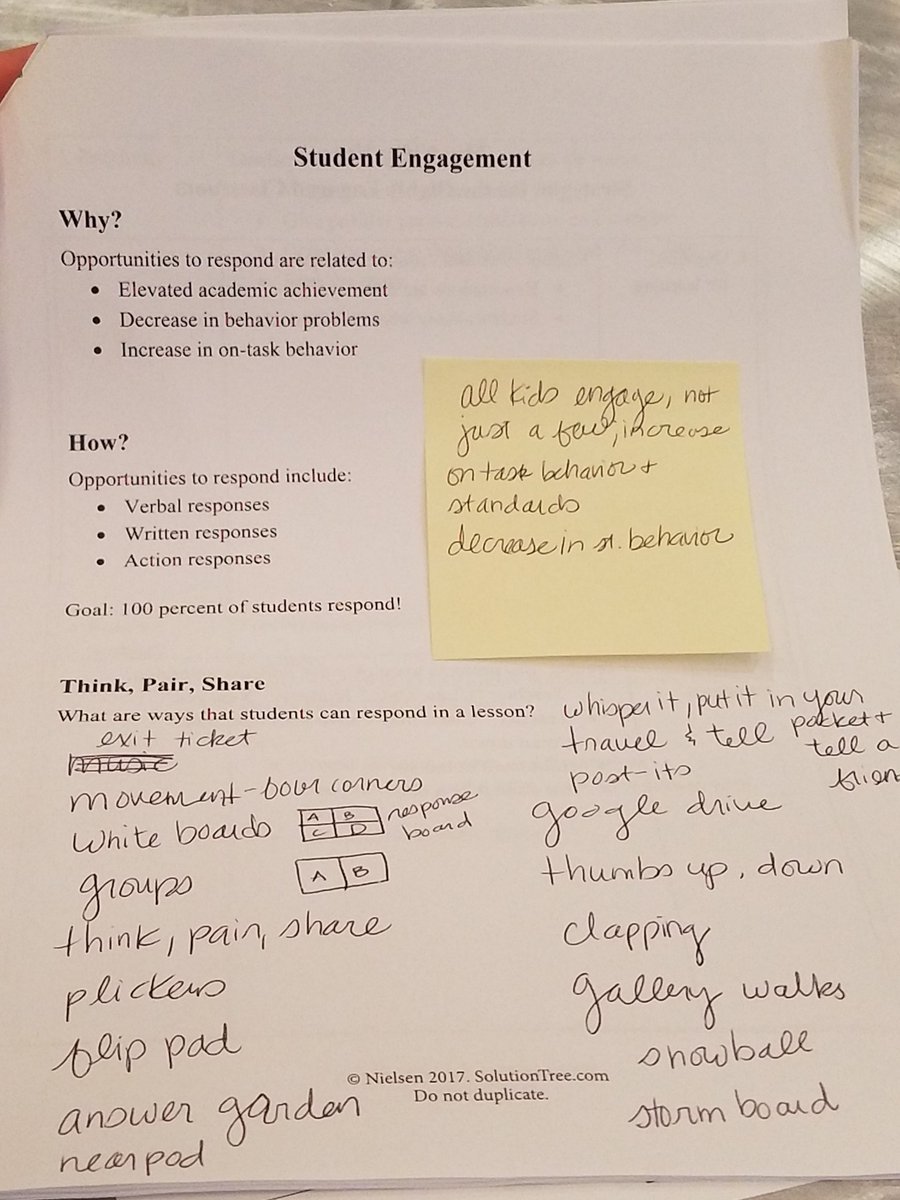 Student Engagement
Why?
Opportunities to respond are related to:
• Elevated academic achievement
• Decrease in behavior problems
• Increase in on-task behavior
all kids engage, not
just a few, increase
on task behavior +
standards
decrease in st. behavior
How?
Opportunities to respond include:
• Verbal responses
• Written responses
• Action responses
Goal: 100 percent of students respond!
Think, Pair, Share
What are ways that students can respond in a lesson?
exit ticket
music
movement - four corners
White boards
A B
C D
response
board
groups
A B
think, pair, share
plickers
flip pad
answer garden
nearpod
whisper it, put it in your
pocket +
tell a
frien
travel & tell
post-its
google drive
thumbs up, down
clapping
gallery walks
snowball
storm board
© Nielsen 2017. SolutionTree.com
Do not duplicate.